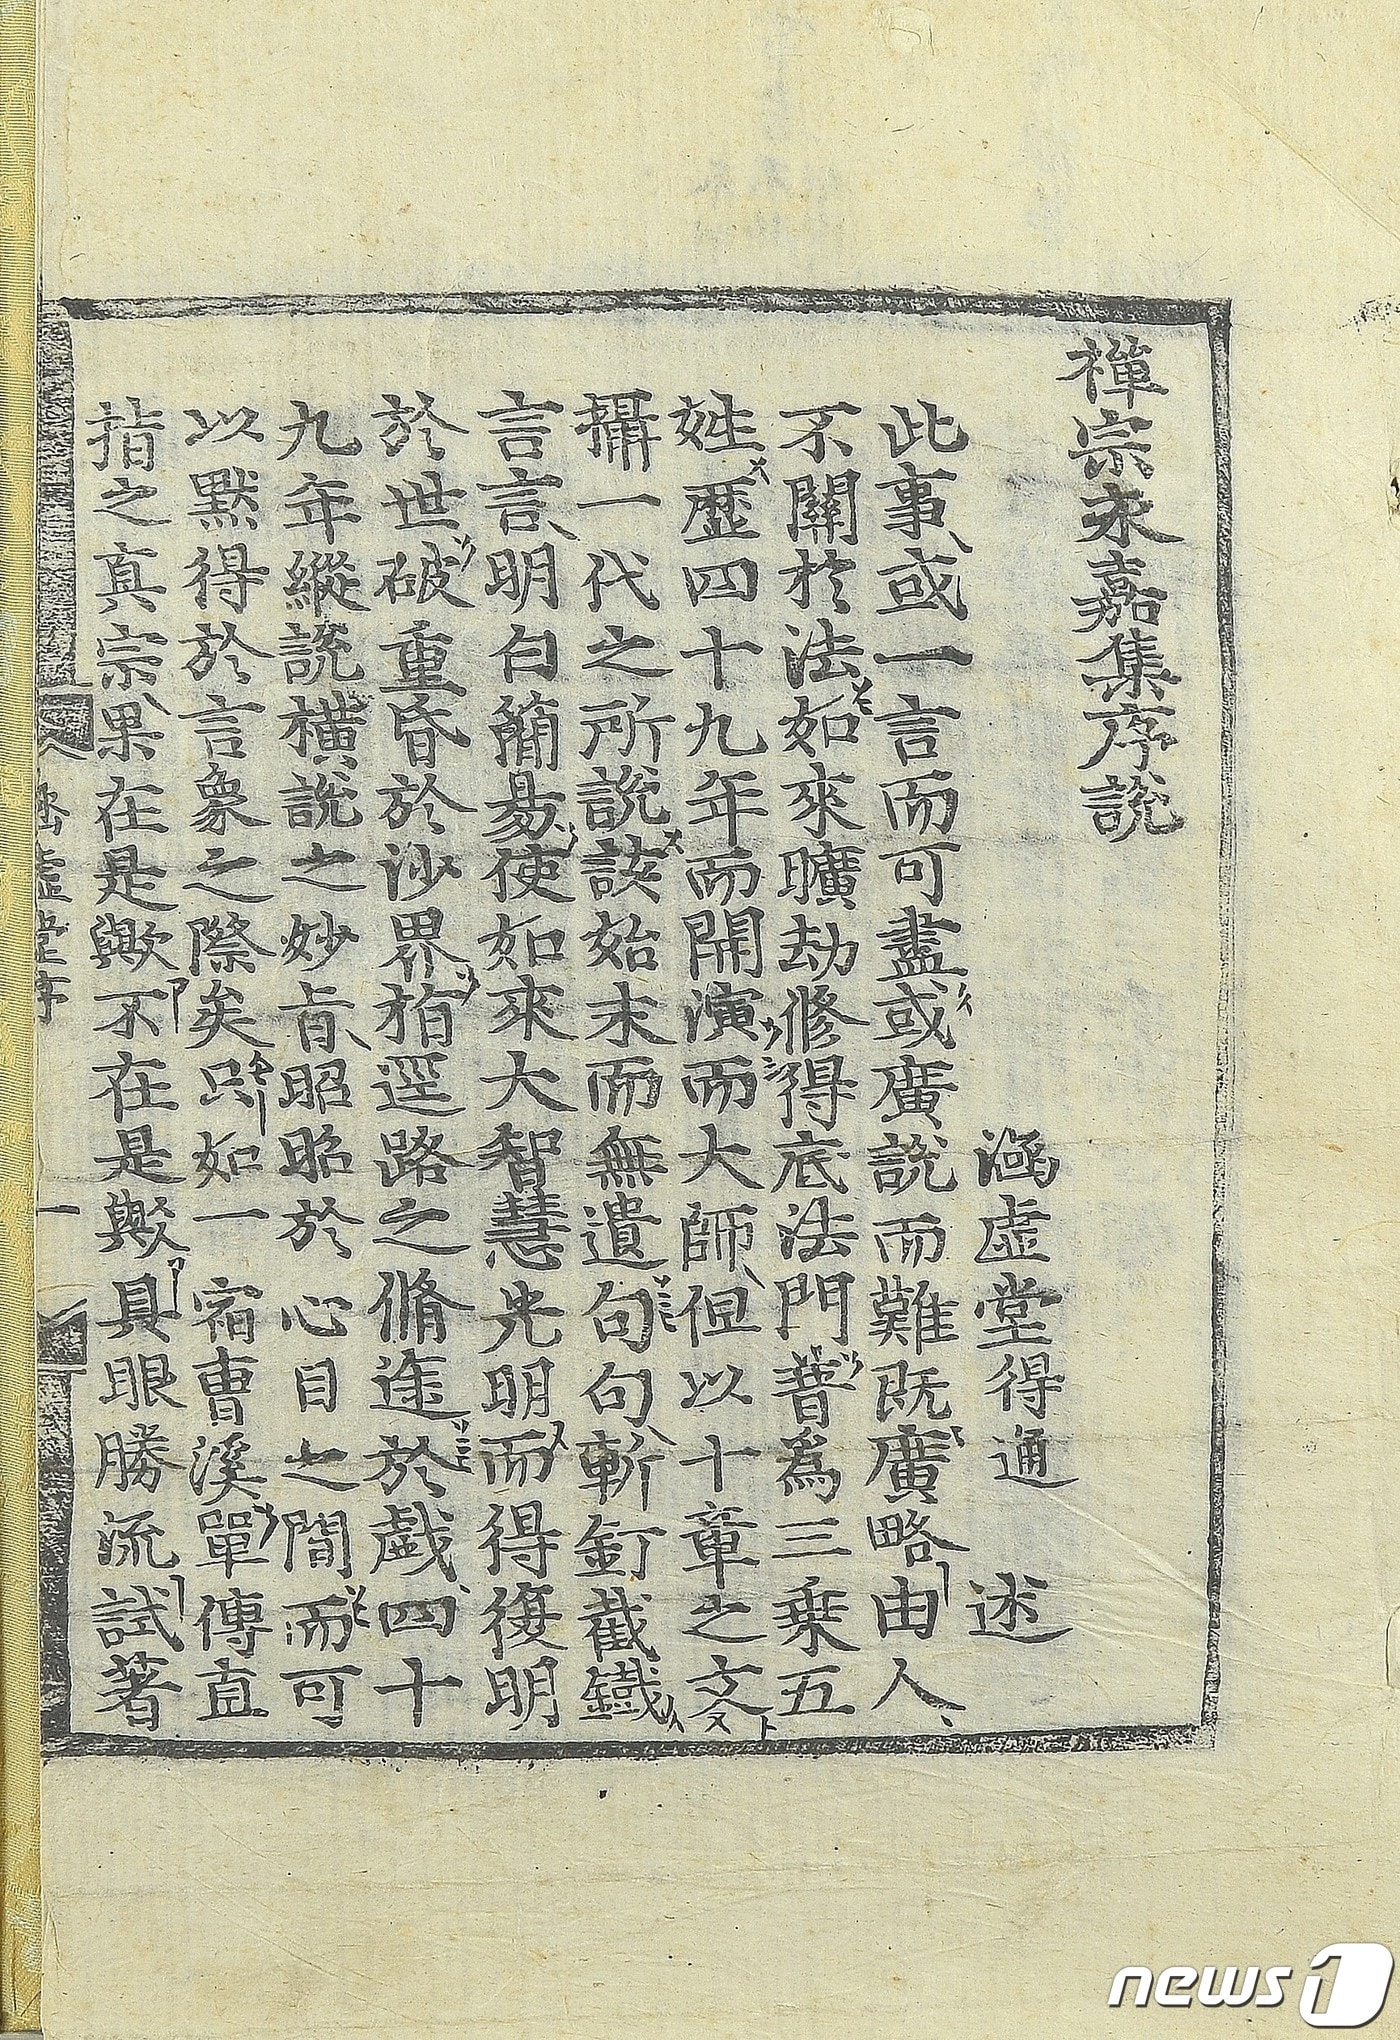 禪宗永嘉集序說
涵虛堂得通 述
此事或一言而可盡或廣說而難既廣略由人
不關於法如來曠劫修得底法門普爲三乘五
姓歷四十九年而開演而大師但以十章之文
攝一代之所說該始末而無遺句句斬釘截鐵
言言明白簡易使如來大智慧光明而得復明
於世破重昏於沙界指逕路之脩途於戱四十
九年縱說橫說之妙旨昭昭於心目之間而可
以默得於言象之際矣只如一宿曹溪單傳直
指之真宗果在是歟不在是歟具眼勝流試著
涵虛堂序
一
news1